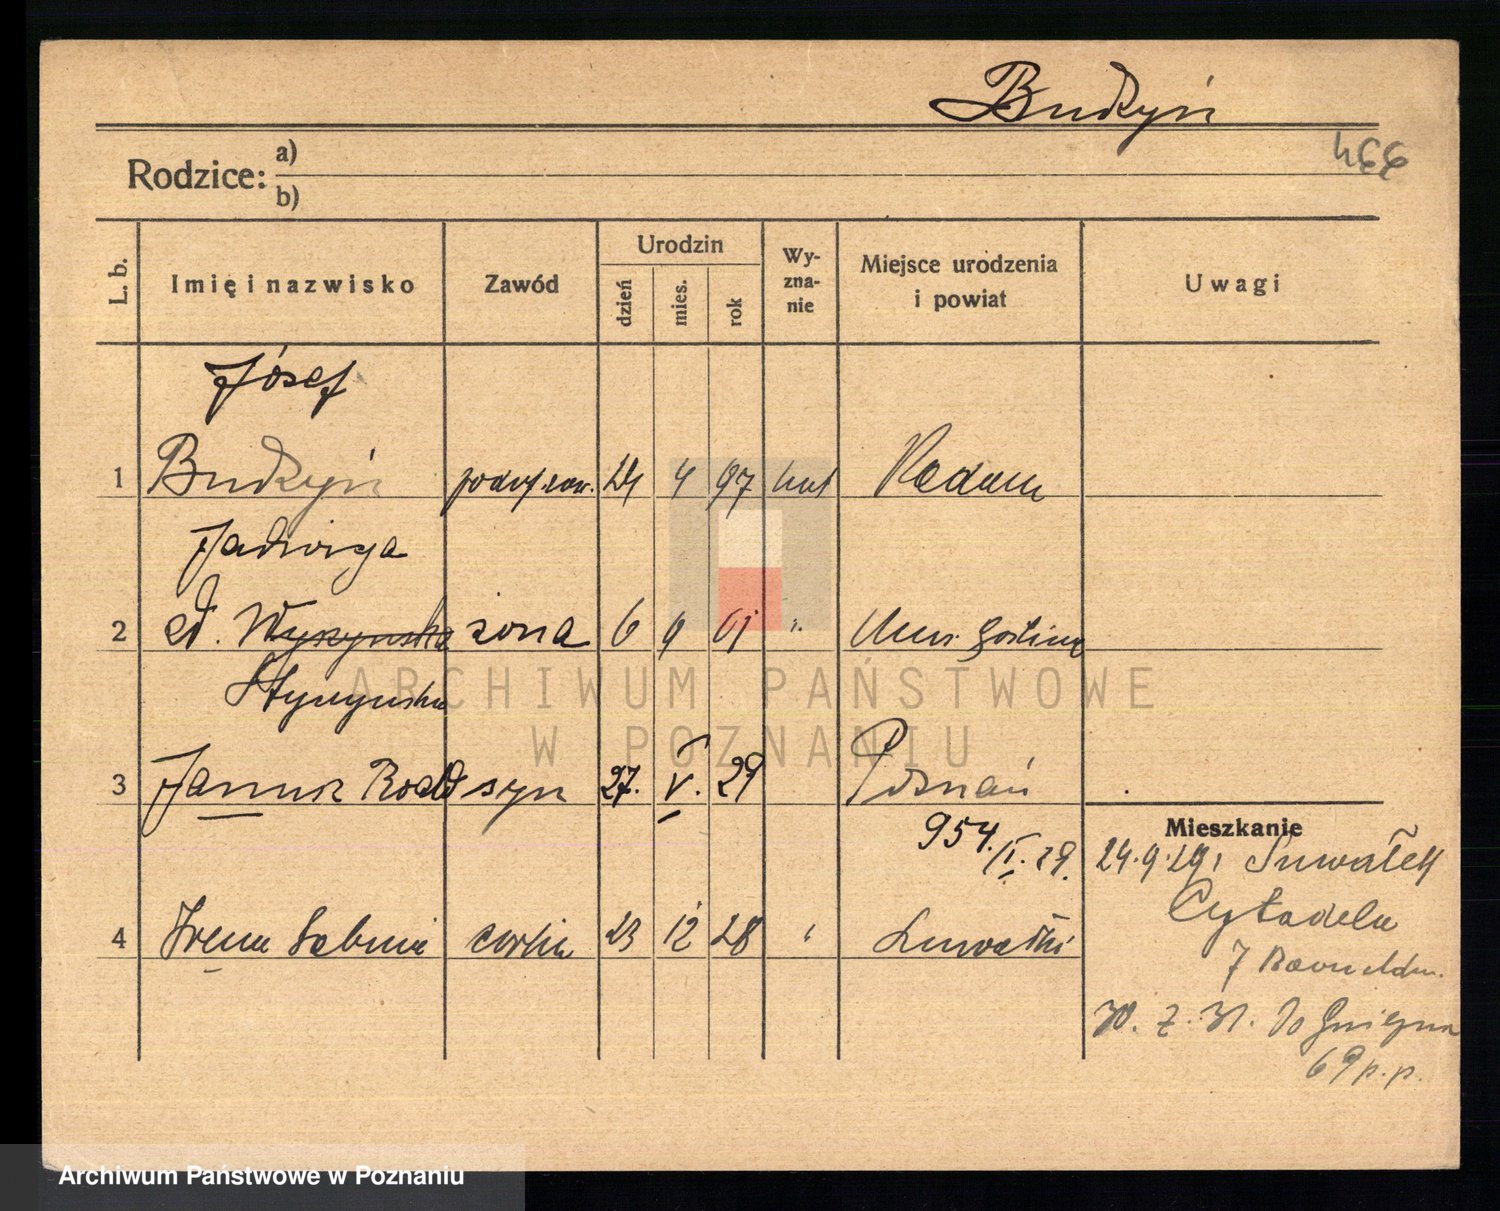 Budzyń
466
Rodzice: a)
b)
L. b. Imię i nazwisko Zawód Urodzin dzień mies. rok Wyznanie Miejsce urodzenia i powiat Uwagi
Józef
1 Budzyń podof. zaw. 24 4 97 kat Radom
Jadwiga
2 żona 6 9 01 " Mur. Goślina
3 Janusz syn 27. V. 29 Poznań
954. 29.
Mieszkanie
24.9.29, Suwałki
4 Irena córka 23 12 28 " Suwałki
Cytadela
7
30. 31. do Gniezna
69 p.p.
ARCHIWUM PAŃSTWOWE
W POZNANIU
Archiwum Państwowe w Poznaniu